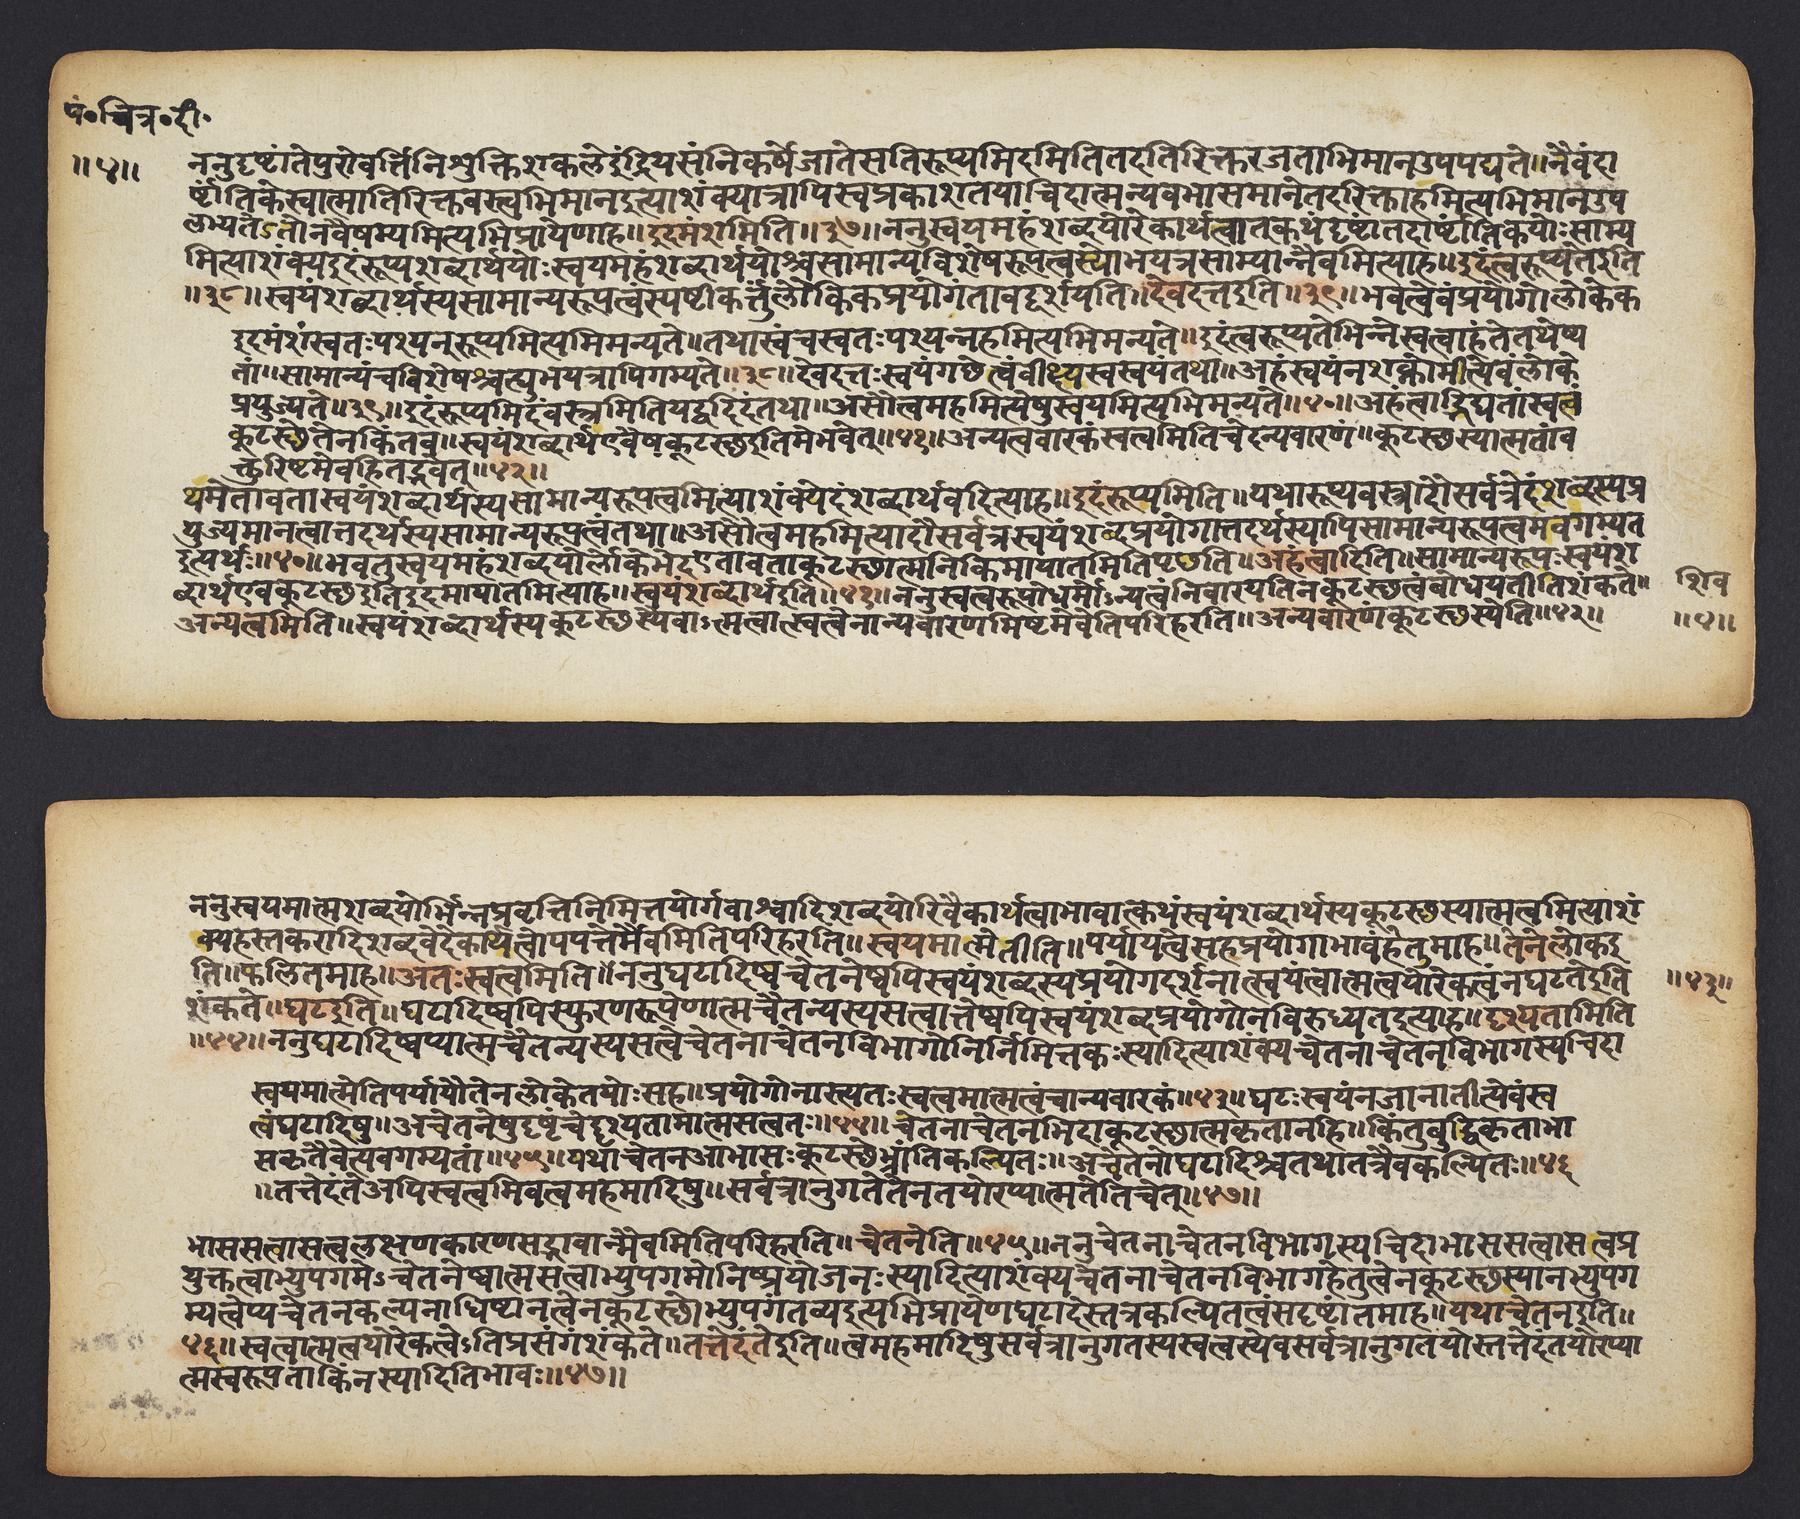 पं॰चित्र॰दी॰
॥४॥
ननुदृष्टांतेपुरोवर्त्तिनिशुक्तिशकलेइंद्रियसंनिकर्षेजातेसतिरूप्यमिदमितितदतिरिक्तरजताभिमानउपपद्यते॥नैवंदा
र्ष्टांतिकेस्वात्मातिरिक्तवस्त्वभिमानइत्याशंक्यात्रापिस्वप्रकाशतयाचिदात्मन्यवभासमानेतदरिक्ताहमित्यभिमानउप
लभ्यतेऽतोनवैषम्यमित्यमिप्रायेणाह॥इदमंशमिति॥३७॥ननुस्वयमहंशब्दयोरेकार्थत्वातकथंदृष्टांतदार्ष्टांतिकयोःसाम्य
मित्याशंक्यइदंरूप्यशब्दार्थयोःस्वयमहंशब्दार्थयोश्चसामान्यविशेषरूपत्वस्योभयत्रसाम्यान्नैवमित्याह॥इदंत्वरूप्यतेइति
॥३८॥स्वयंशब्दार्थस्यसामान्यरूपत्वंस्पष्टीकर्त्तुंलौकिकप्रयोगंतावद्दर्शयति॥देवदत्तइति॥३९॥भवत्वेवंप्रयोगोलोकेक
इदमंशंस्वतःपश्यनुरूप्यमित्यमिमन्यते॥तथास्वंचस्वतःपश्यन्नहमित्यभिमन्यते॥इदंत्वरूप्यतेभिन्नेस्वत्वाहंतेतथेष्य
तां॥सामान्यंचविशेषश्चत्द्युभयत्रापिगम्यते॥३८॥देवदत्तःस्वयंगछेत्वंवीक्ष्यस्वस्वयंतथा॥अहंस्वयंनशक्नोमीत्येवंलोके
प्रयुज्यते॥३९॥इदंरूप्यमिदंवस्त्रमितियद्वदिदंतथा॥असौत्वमहमित्येषुस्वयमित्यभिमन्यते॥४०॥अहंत्वाद्भिद्यतांस्वत्वं
कूटस्छेतेनकिंतव॥स्वयंशब्दार्थएवैषकूटस्छइतिमेभवेत्॥४१॥अन्यत्ववारकंस्वत्वमितिचेदन्यवारणं॥कूटस्छस्यात्मतांव
क्तुरिष्टमेवहितद्भवेत्॥४२॥
थमेतावतास्वयंशब्दार्थस्यसामान्यरूपत्वमित्याशंक्येदंशब्दार्थवदित्याह॥इदंरूप्यमिति॥यथारूप्यवस्त्रादौसर्वत्रेदंशब्दस्यप्र
युज्यमानत्वात्तदर्थस्यसामान्यरूपत्वंतथा॥असौत्वमहमित्यादौसर्वत्रस्वयंशब्दप्रयोगात्तदर्थस्यापिसामान्यरूपत्वमवगम्यत
इत्यर्थः॥४०॥भवतुस्वयमहंशब्दयोर्लोकेभेदएतावताकूटस्छात्मनिकिमायातमितिपृछति॥अहंत्वादिति॥सामान्यरूपःस्वयंश
ब्दार्थएवकूटस्छइतिइदमायातमित्याह॥स्वयंशब्दार्थइति॥४१॥ननुस्वत्वरूपोधर्मोऽन्यत्वंनिवारयतिनकूटस्छत्वंबोधयतीतिशंकते॥
अन्यत्वमिति॥स्वयंशब्दार्थस्यकुटस्छस्यैवाऽत्मत्वात्स्वत्वेनान्यवारणमिष्टमेवेतिपरिहरति॥अन्यवारणंकूटस्छस्येति॥४२॥
शिव
॥४॥
ननुस्वयमात्मशब्दयोर्भिन्नप्रवृत्तिनिमित्तयोर्गवाश्वादिशब्दयोरिवैकार्थत्वाभावात्कथंस्वयंशब्दार्थस्यकूटस्छस्यात्मत्वमित्याशं
क्यहस्तकरादिशब्दवेदेकार्थत्वोपपत्तेर्मैवमितिपरिहरति॥स्वयमात्मेतीति॥पर्यायत्वेसहप्रयोगाभावंहेतुमाह॥तेनलोकइ
ति॥फलितमाह॥अतःस्वत्वमिति॥ननुघटादिष्वचेतनेष्वपिस्वयंशब्दस्यप्रयोगदर्शनात्स्वयंत्वात्मत्वयोरेकत्वंनघटतेइति
॥४३॥
शंकते॥घटइति॥घटादिष्वपिस्फुरणरूपेणात्मचैतन्यस्यसत्वात्तेष्वपिस्वयंशब्दप्रयोगोनविरुध्यतइत्याह॥दृश्यतामिति
॥४४॥ननुघटादिष्वप्यात्मचैतन्यस्यसत्वेचेतनाचेतनविभागोनिर्निमित्तकःस्यादित्याशंक्यचेतनाचेतनविभागस्यचिदा
स्वयमात्मेतिपर्यायौतेनलोकेतयोःसह॥प्रयोगोनास्त्यतःस्वत्वमात्मत्वंचान्यवारकं॥४३॥घटःस्वयंनजानातीत्येवंस्व
त्वंघटादिषु॥अचेतनेषुदृष्टंचेद्दृश्यतामात्मसत्वतः॥४४॥चेतनाचेतनभिदाकूटस्छात्मकृतानहि॥किंतुबुद्धिकृताभा
सकृतैवेत्यवगम्यतां॥४५॥यथाचेतनआभासःकूटस्छेभ्रांतिकल्पितः॥अचेतनोघटादिश्चतथातत्रैवकल्पितः॥४६
॥तत्तेदंतेअपिस्वत्वमिवत्वमहमादिषु॥सर्वत्रानुगतेतेनतयोरप्यात्मतेतिचेत्॥४७॥
भाससत्वासत्वलक्षणकारणसद्भावान्मैवमितिपरिहरति॥चेतनेति॥४५॥ननुचेतनाचेतनविभागस्यचिदाभाससत्वासत्वप्र
युक्तत्वाभ्युपगमेऽचेतनेष्वात्मसत्वाभ्युपगमोनिष्प्रयोजनःस्यादित्याशंक्यचेतनाचेतनविभागहेतुत्वेनकूटस्छस्यानभ्युपग
म्यत्वेप्यचेतनकल्पनाधिष्टानत्वेनकूटस्छोभ्युपगंतव्यइत्यभिप्रायेणघटादेस्तत्रकल्पितत्वंसदृष्टांतमाह॥यथाचेतनइति॥
४६॥स्वत्वात्मत्वयोरेकत्वेऽतिप्रसंगंशंकते॥तत्तेदंतेइति॥त्वमहमादिषुसर्वत्रानुगतस्यस्वत्वस्येवसर्वत्रानुगतयोस्तत्तेदंतयोरप्या
त्मस्वरूपताकिंनस्यादितिभावः॥४७॥